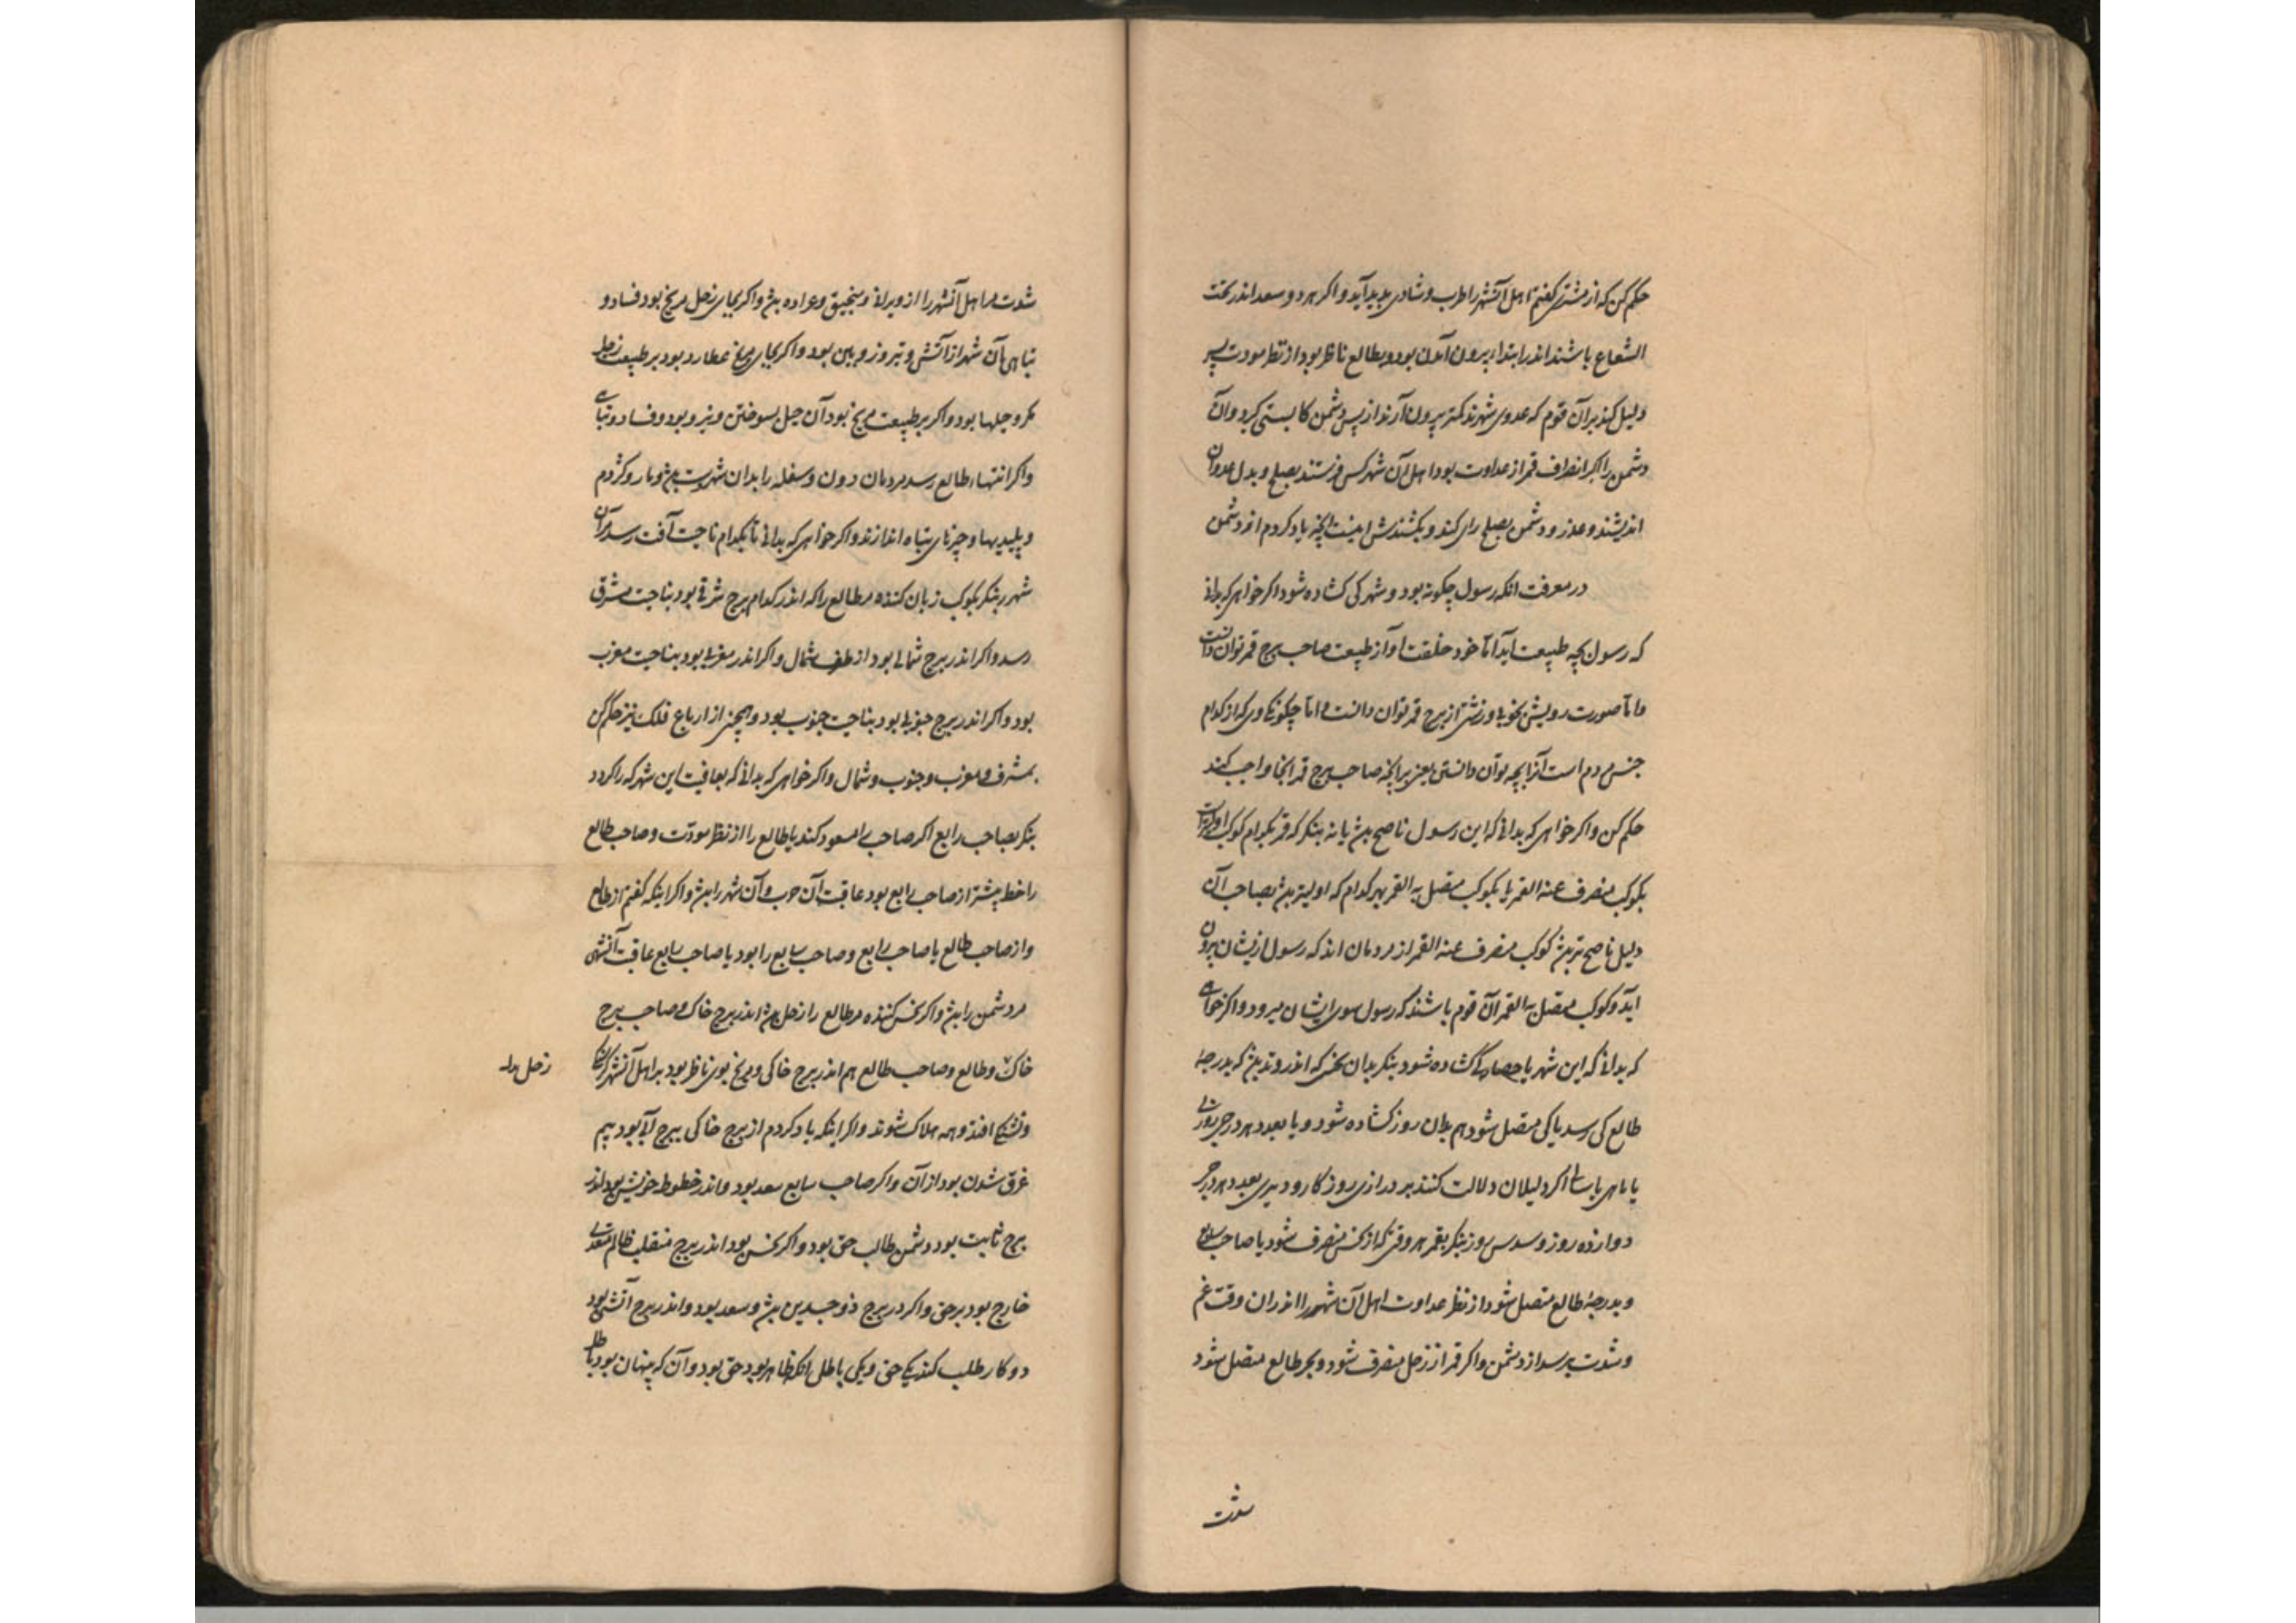 حکم کن که از مشتری گفتم اهل آنشهر را طرب و شادی بدید آید و اکر هر دو سعد اندر تحت
الشعاع باشند اندر ابتداء بیرون آمدن بود و بطالع ناظر بود از نظر مودت
دلیل کند بر آن قوم که عدوی شهرند بیرون آرند از پس دشمن و آن
دشمن را اکر انصراف قمر از عداوت بود اهل آن شهر کس فرستند بصلح و بدل
اندیشند و عذر و دشمن بصلح رای کند و بکشندش اینست انچه یاد کردم
در معرفت انکه رسول چکونه بود و شهر کی کشاده شود اکر خواهی که بدانی
که رسول بچه طبیعت آید اما خود خلقت او از طبیعت صاحب برج قمر توان دانست
و اما صورت رویش از برج قمر توان دانست و اما که از کدام
جنس مردم است صاحب برج قمر انجا واجب کند
حکم کن و اکر خواهی که بدانی که این رسول ناصح بد یا نه بنکر که قمر بکدام کوکب
بکوکب منصرف عنه القمر یا بکوکب متصل به القمر بهر کدام که بصاحب آن
دلیل ناصح تر کوکب منصرف عنه القمر از مردمان اند که رسول ازیشان بیرون
آید و کوکب متصل به القمر آن قوم باشند که رسول سوی ایشان میرود و اکر خواهی
که بدانی که این شهر یا حصار کی کشاده شود بنکر بدان نحس که اندر وتد که بدرجهٔ
طالع کی رسد یا کی متصل شود هم بدان روز کشاده شود و یا بعدد هر درجی روزی
یا ماهی یا سالی اکر دلیلان دلالت کنند بر درازی روزکار و دیری بعدد هر درجی
دوازده روز و سدس روز بنکر بقمر هر وقتی که از نحس منصرف شود یا صاحب سابع
و بدرجهٔ طالع متصل شود از نظر عداوت اهل آن شهر را اندران وقت غم
و شدت برسد از دشمن و اکر قمر از زحل منصرف شود و بجر طالع متصل شود
شدت
شدت مر اهل آنشهر را از ویرانی و منجنیق و عراده و اکر بجای زحل مریخ بود فساد و
تباهی آن شهر از آتش و تیر و بود و اکر بجای مریخ عطارد بود بر طبیعت زحل
مکر و حیلها بود و اکر بر طبیعت مریخ بود آن حیل بسوختن و بود و فساد و تباهی
و اکر انتهاء طالع رسد مردمان دون و سفله را بدان شهر و مار و کژدم
و پلیدیها و چیزهای تباه اندازند و اکر خواهی که بدانی تا بکدام ناحیت آفت رسد
شهر بنکر بکوکب زیان کننده مر طالع را که اندر کدام برج شرقی بود بناحیت مشرق
رسد و اکر اندر برج شمالی بود از طرف شمال و اکر اندر مغربی بود بناحیت مغرب
بود و اکر اندر برج جنوبی بود بناحیت جنوب بود و همچنین از ارباع فلک نیز حکم کن
بمشرق و مغرب و جنوب و شمال و اکر خواهی که بدانی که بعاقبت این شهر که را کردد
بنکر بصاحب رابع اکر صاحب را مسعود کند یا طالع را از نظر مودت و صاحب طالع
را حظ بیشتر از صاحب رابع بود عاقبت آن حرب و آن شهر را و اکر اینکه کفتم از طالع
و از صاحب طالع یا صاحب رابع و صاحب سابع را بود یا صاحب سابع عاقبت آنشهر
مر دشمن را و اکر نحس کننده مر طالع را زحل اندر برج خاکی و صاحب برج
خاکی و طالع و صاحب طالع هم اندر برج خاکی و مریخ بوی ناظر بود بر اهل آنشهر
زحل
و تشنکی افتد و همه هلاک شوند و اکر اینکه یاد کردم از برج خاکی ببرج آبی بود بیم
غرق شدن بود از آن و اکر صاحب سابع سعد بود و اندر حظوظ خویش بود اندر
برج ثابت بود دشمن طالب حق بود و اکر نحس بود اندر برج منقلب ظالم
خارج بود بر حق و اکر در برج ذوجسدین و سعد بود و اندر برج آتشی بود
دو کار طلب کند یکی حق و یکی باطل انکه ظاهر بود حق بود و آن که پنهان بود باطل